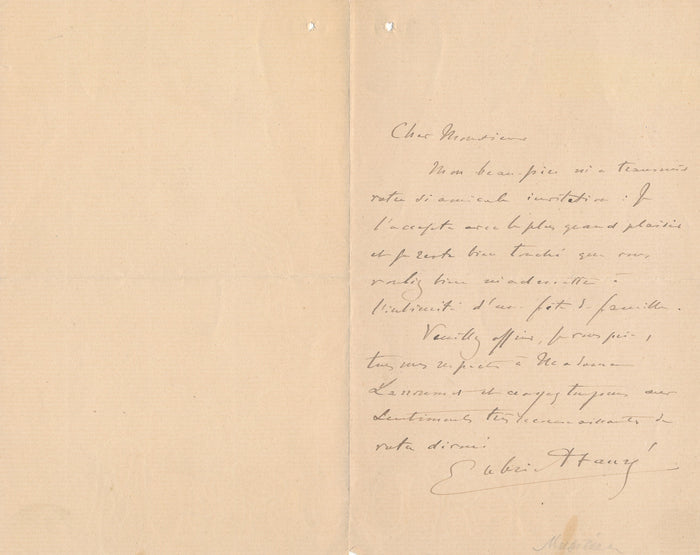 Cher Monsieur
Mon beau-père m'a transmis
votre si amicale invitation : Je
l'accepte avec le plus grand plaisir
et je reste bien touché que vous
vouliez bien m'admettre à
l'intimité d'une fête de famille.
Veuillez offrir, je vous prie,
tous mes respects à Madame
Larroumet et croyez toujours aux
sentiments très reconnaissants de
votre dévoué
Gabriel Fauré